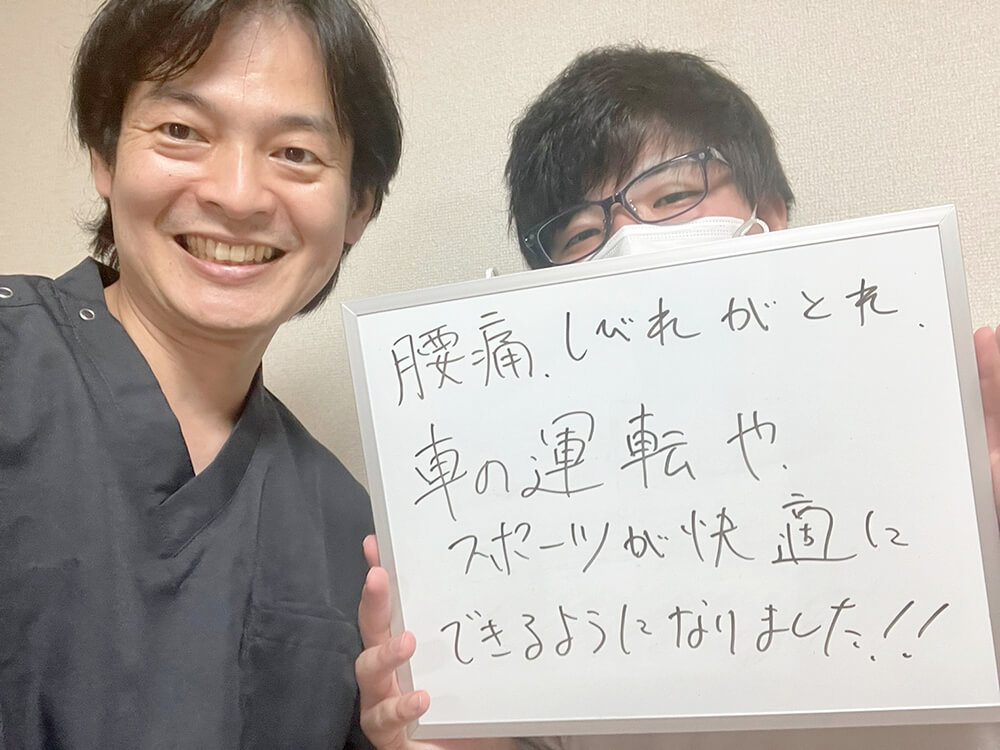 腰痛、しびれがとれ、
車の運転や、
スポーツが快適に
できるようになりました!!